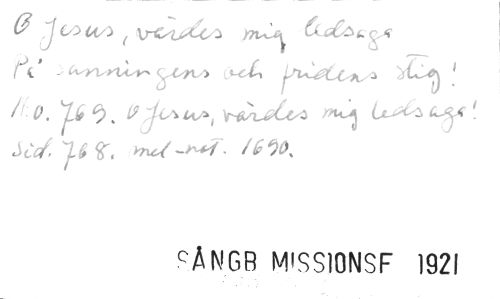 O Jesus, värdes mig ledsaga
På sanningens och fridens stig!
No. 769. O Jesus, värdes mig ledsaga!
Sid. 768. mel-not. 1690.
SÅNGB MISSIONSF 1921